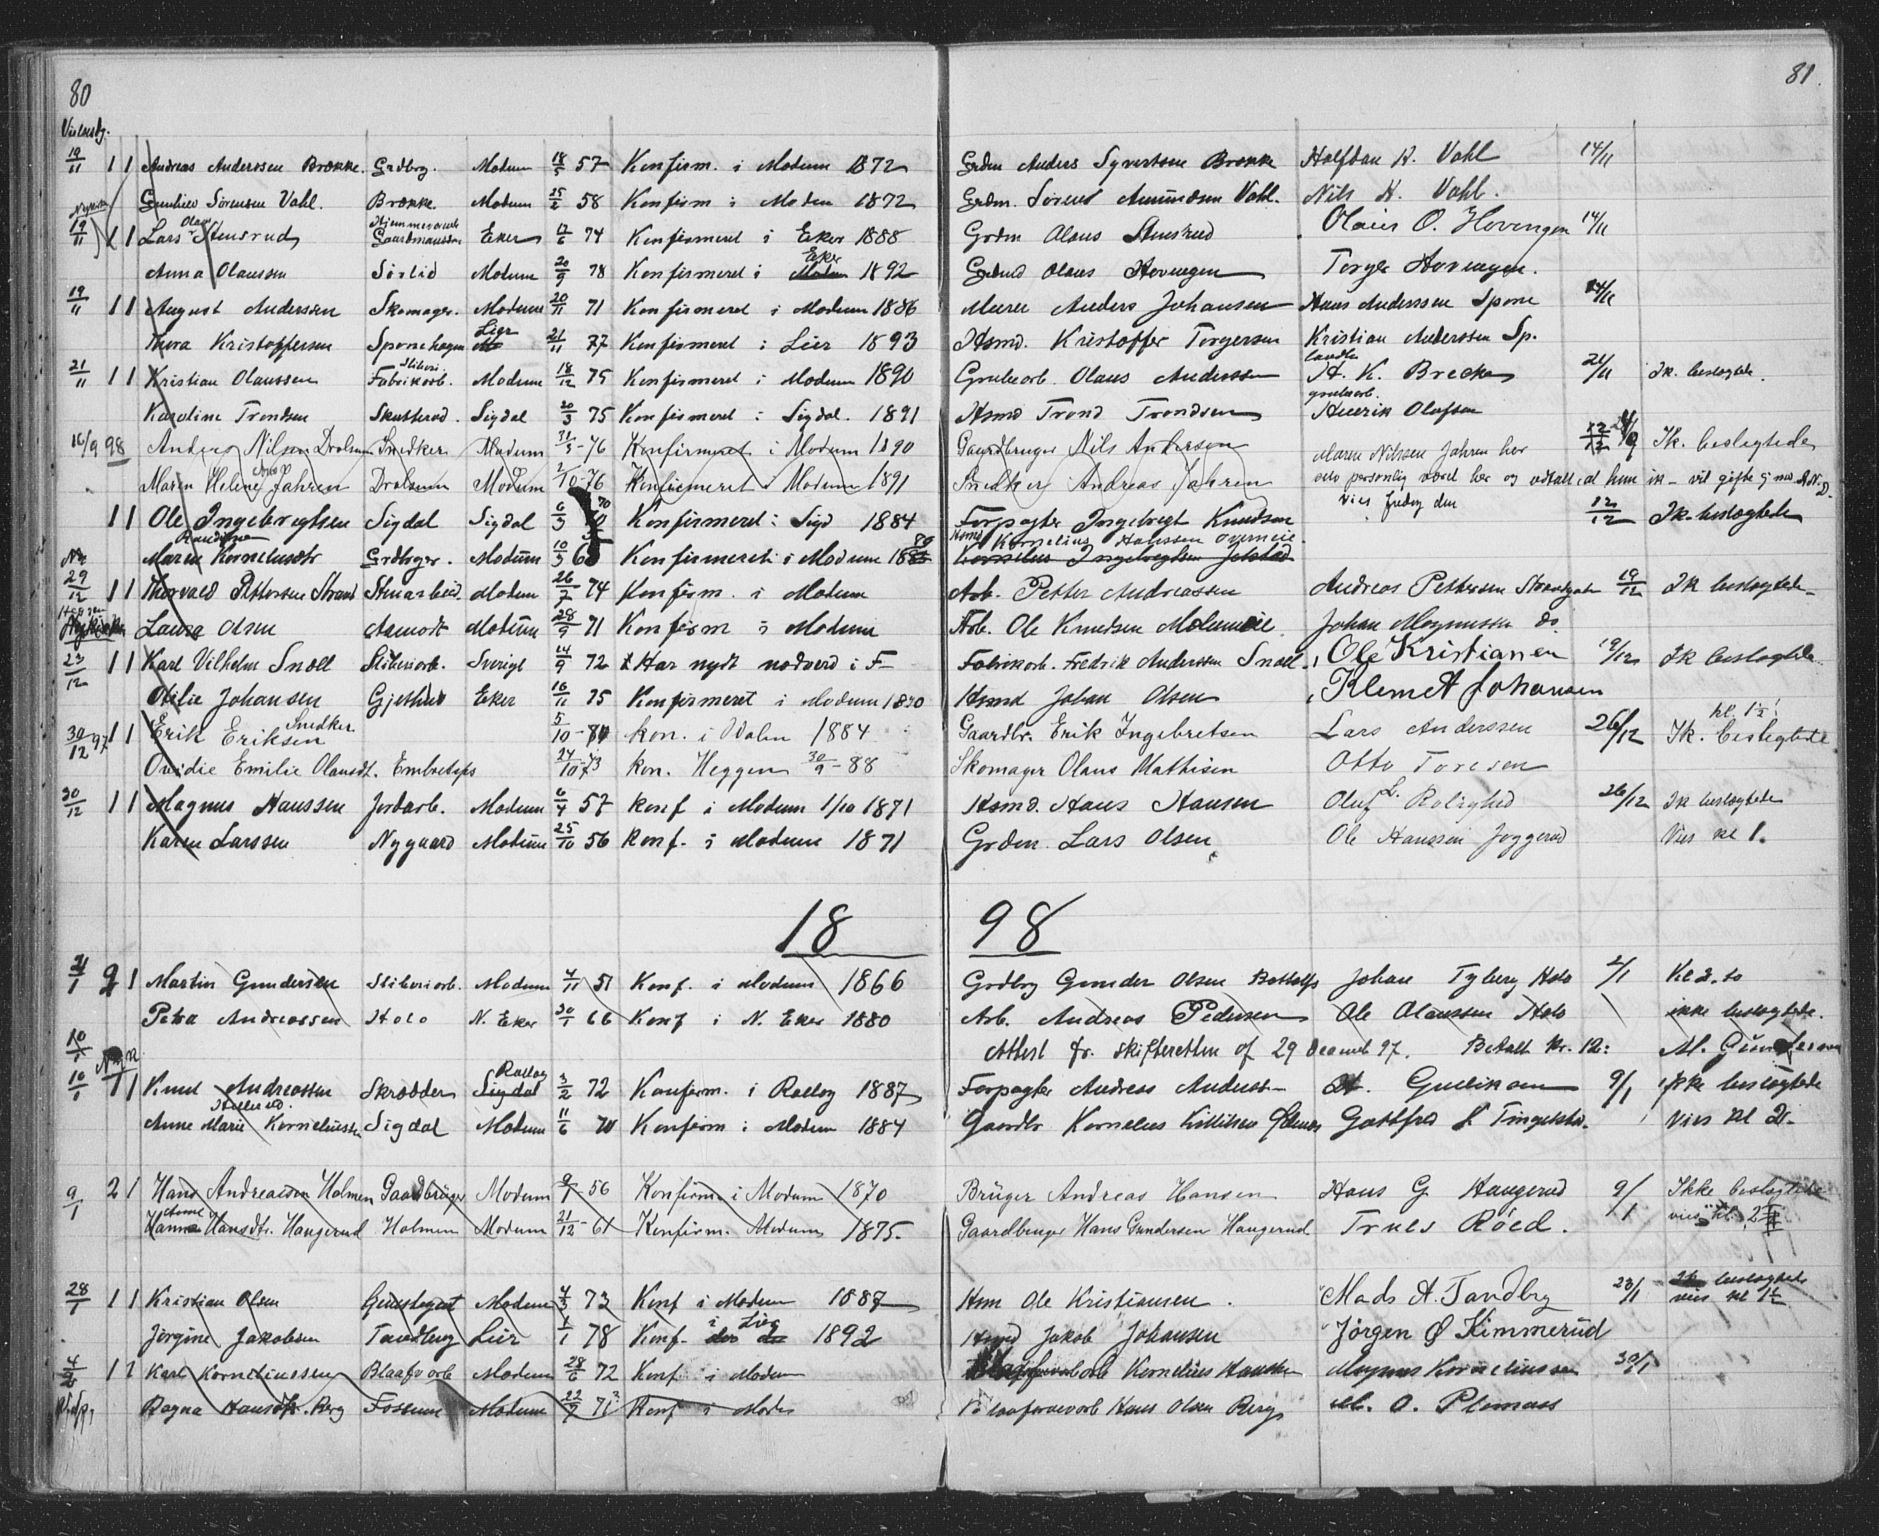 80
81.
19/11 1 1 Andreas Anderssen Brække. Grdbrg. Modum 18/5 57 Konfirm. i Modum 1872 Grdm Anders Syvertsen Brække Halfdan K. Vahl 14/11
Sørensen Vahl. Brække. Modum 25/2 58 Konfirm i Modum 1872 Grdm. Sørens Amundsen Vahl. Nils H. Vahl.
Olsen Hjemmeværende
19/11 1 1 Lars Stensrud Gaardmandssøn Eker 17/6 74 Konfirmeret i Eker 1888 Grdm Olaus Stensrud Olaus O. Hovengen 14/11
Eker
Anna Olaussen Sørlid Modum 20/9 78 Konfirmeret i Modum 1892 Olaus Hovengen Torger Hovengen.
19/11 1 1 August Anderssen Skomager. Modum 20/11 71 Konfirmeret i Modum 1886 Murer Anders Johansen Hans Anderssen Spone 14/11
Lier
Thora Kristoffersen Sponehagen 21/11 77 Konfirmeret i Lier 1893 Hsmd. Kristoffer Torgersen Kristian Anderssen Sp.
Sliberi
21/11 1 1 Kristian Olaussen Fabrikarb. Modum 18/12 75 Konfirmeret i Modum 1890 Grubearb. Olaus Anderssen H. K. Brecke 21/11 Ik. beslegtede.
grubearb.
Karoline Trondsen Skutterud. Sigdal 20/3 75 Konfirmeret i Sigdal. 1891 Hsmd Trond Trondsen Henrik Olafsen
16/9 98 Anders Nilsen Drolsum Snedker. Modum 31/5-76 Konfirmeret i Modum 1890 Gaardbruger Nils Andersen Maren Nilssen Jahren har Ik. beslegtede
Maren Helene Jahren Drolsum Modum 2/10-76 Konfirmeret i Modum 1891 Snedker Andreas Jahren selv personlig været her og udtalt, at hun ik - vil gifte sig med A.N.D.
Vies fredag den
1 1 Ole Ingebregtsen Sigdal Sigdal 6/3 70 Konfirmeret i Sigd 1884 Forpagter Ingebregt Knudsen 12/12 Ik. beslægtede
Hsmd Kornelius Hanssen
Maren Korneliusdtr Grdbrger. Modum 10/3 Konfirmeret i Modum Kornelius Ingebregtsen Jelstad
29/12 1 1 Thorvald Pettersen Strand Stenarbeid. Modum 26/7 74 Konfirm. i Modum Arb. Petter Andreassen Andreas Pettersen 19/12 Ik beslægtede
Laura Olsen Aamodt Modum 28/9 71 Konfirm i Modum Arb. Ole Knudsen Johan Magnussen do
23/12 1 1 Karl Vilhelm Snäll Sliberiarb. Sverige 14/9 72 Har nydt nadverd i F- Fabrikarb. Fredrik Anderssen Snäll. Ole Kristiansen 19/12 Ik beslægtede
Otilie Johansen Gjethus Eker 16/11 75 Konfirmeret i Modum 1890 Hsmd Johan Olsen Klemet Johansen
Snedker kl. 1½!
30/12 97 1 1 Erik Eriksen 5/10-74 kon. i Vdalen 1884 Gaardbr. Erik Ingebretsen Lars Anderssen 26/12 Ik. beslegtede
Ovidie Emilie Olausdt. Embretsfos 24/10-73 kon. Heggen 30/9-88 Skomager Olaus Mathisen Otto Toresen
30/12 1 1 Magnus Hanssen Jordarb. Modum 6/4 57 konf i Modum 1/10 1871 Hsmd. Hans Hansen Oluf L. Rolighed 26/12 Ik beslægtede
Karen Larssen Nygaard Modum 25/10 56 konf. i Modum 1871 Grdm. Lars Olsen Ole Hanssen Joggerud Vies kl 1.
18 98
4/1 2 1 Martin Gundersen Sliberiarb. Modum 4/11 51 Konf. i Modum 1866 Grdbrg Gunder Olsen Johan Tyberg Holo 2/1 Kl 2.
Petra Andreassen Holo N. Eker 30/1 66 Konf i N. Eker 1880 Arb. Andreas Pedersen Ole Olaussen Holo ikke beslægtede.
Attest fr. skifteretten af 29 Decemb 97. Betalt Kr. 12: M. Gundersen
10/1
Rollag
10/1 1 1 Knut Andreassen Skrædder Sigdal 3/2 72 Konfirm. i Rollag 1887 Forpagter Andreas Anderssn A. Gulliksen 9/1 ikke beslægtede
Anne Marie Korneliussen Sigdal Modum 11/6 70 Konfirm i Modum 1884 Gaardbr Kornelius Gottfred Tingelstad. Vies kl 2.
9/1 2 1 Hans Andreassen Holmen Gaardbruger Modum 9/1 56 Konfirm. i Modum 1870 Brüger Andreas Hansen Hans G Haugerud 9/1 Ikke beslegtede
Anne
Hanna Hansdtr. Haugerud Holmen Modum 21/12-61 Konfirm. Modum 1875. Gaardbruger Hans Gundersen Haugerud Truls Røed. vies kl. 2
28/1 1 1 Kristian Olsen Modum 4/3 73 Konf i Modum 1887 Hsm Ole Kristiansen. Mads A. Tandbrg 23/1 Ik beslegtede vies kl 1½
i Lier
Jørgine Jakobsen Tandberg Lier 1/1 78 Konf. 1892 Hsmd Jakob Johansen Jørgen Ø Kimmerud
4/2 1 1 Karl Korneliussen Blaafv arb Modum 28/6 72 Konf i Modum Kornelius Hanssen Magnus Korneliussen 30/1
Ragna Hansdtr. Berg Fossum Modum 22/7 73 Konf i Modum Blaafarvevarb Hans Olsen Berg M. O. Plomaas